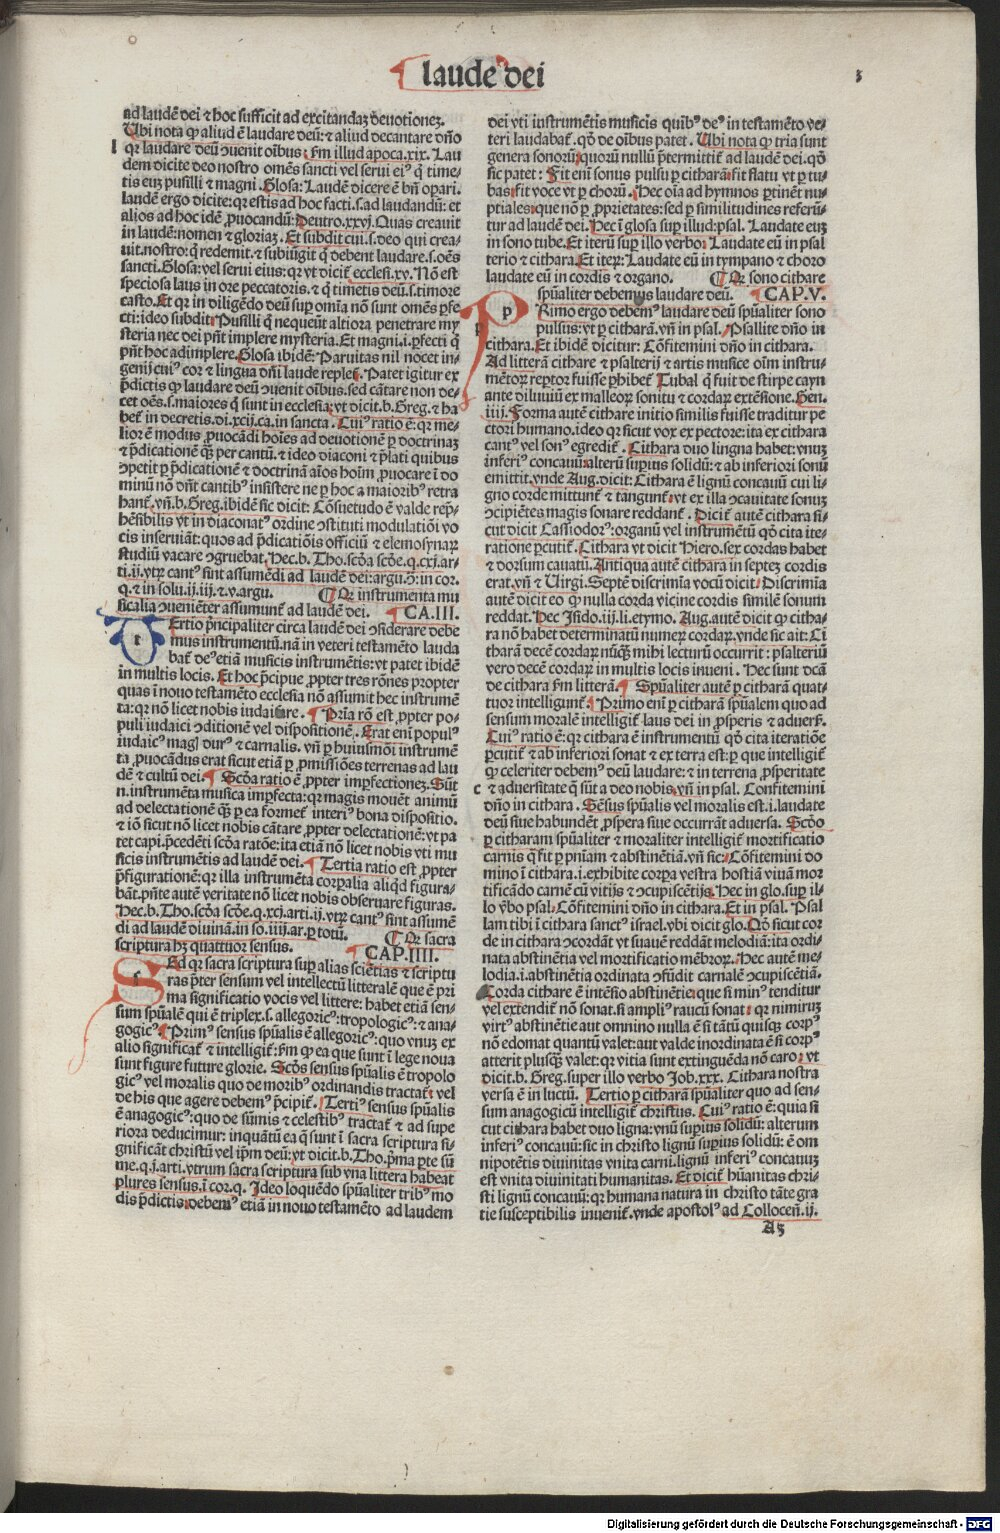 laude dei
3
ad laudē dei ⁊ hoc sufficit ad excitandaꝫ deuotioneꝫ.
Ubi nota ꝙ aliud ē laudare deū: ⁊ aliud decantare dn̄o
l
qꝛ laudare deū ↄuenit oībus: ẜm illud apoca.xix. Lau
dem dicite deo nostro omēs sancti vel serui eiꝰ q̇ time-
tis euꝫ pusilli ⁊ magni. Glosa: Laudē dicere ē bn̄ opari.
laudē ergo dicite: qꝛ estis ad hoc facti.s.ad laudandū: et
alios ad hoc idē ꝓuocandū: Deutro.xxvj. Quas creauit
in laudē: nomen ⁊ gloriaꝫ. Et subdit cui.s.deo qui crea-
uit. nostro: q̇ redemit. ⁊ subiūgit q̇ debent laudare.s.oēs
sancti. Glosa: vel serui eius: qꝛ vt dicit̉ ecclesi.xv. Nō est
speciosa laus in ore peccatoris. ⁊ q̇ timetis deū.s.timore
casto. Et qꝛ in diligēdo deū suꝑ omīa nō sunt omēs ꝑfe
cti: ideo subdit: Pusilli q̇ nequeūt altiora penetrare my
steria nec dei pn̄t implere mysteria. Et magni.i.ꝑfecti q̇
pn̄t hoc adimplere. Glosa ibidē: Paruitas nil nocet in-
genij cuiꝰ cor ⁊ lingua dn̄i laude replet̉. Patet igitur ex
p̄dictis ꝙ laudare deū ↄuenit oībus. sed cātare non de-
cet oēs.s.maiores q̇ sunt in ecclesia: vt dicit.b.Greg. ⁊ ha
bet̉ in decretis.di.xcij.ca.in sancta. Cuiꝰ ratio ē: qꝛ me-
lior ē modus ꝓuocādi hoīes ad deuotionē ꝑ doctrinaꝫ
⁊ p̄dicationē qꝫ̄ per cantū. ⁊ ideo diaconi ⁊ p̄lati quibus
ↄpetit ꝑ p̄dicationē ⁊ doctrinā aīos hoīm ꝓuocare ī do
minū nō dn̄t cantibꝰ insistere ne ꝑ hoc a maioribꝰ retra
hant̉. vn̄.b.Greg. ibidē sic dicit: Cōsuetudo ē valde rep-
hēsibilis vt in diaconatꝰ ordine ↄstituti modulatiōi vo
cis inseruiāt: quos ad p̄dicatiōis officiū ⁊ elemosynaꝝ
studiū vacare ↄgruebat. Hec.b.Tho.scd̄a scd̄e.q.cxj.ar-
ti.ij. vtꝝ cantꝰ sint assumēdi ad laudē dei: argu.ↄ̄: in cor.
q. ⁊ in solu.ij.iij. ⁊ v. argu. ¶ Qꝛ instrumenta mu
sicalia ↄueniēter assumunt̉ ad laudē dei. CA.III.
t
Ertio pn̄cipaliter circa laudē dei ↄsiderare debe
mus instrumentū. nā in veteri testamēto lauda
bat̉ deꝰ etiā musicis instrumētis: vt patet ibidē
in multis locis. Et hoc p̄cipue ꝓpter tres rōnes propter
quas ī nouo testamēto ecclesia nō assumit hec instrumē
ta: qꝛ nō licet nobis iudaiꝫare. ¶ Prīa rō est ꝓpter po-
puli iudaici ↄditionē vel dispositionē. Erat enī populꝰ
iudaicꝰ magꝭ durꝰ ⁊ carnalis. vn̄ ꝑ huiusmōi instrumē
ta ꝓuocādus erat sicut etiā ꝑ ꝓmissiōes terrenas ad lau
dē ⁊ cultū dei. ¶ Scd̄a ratio ē ꝓpter imꝑfectioneꝫ. Sūt
n. instrumēta musica imꝑfecta: qꝛ magis mouēt animū
ad delectationē qꝫ̄ ꝑ ea formet̉ interiꝰ bona dispositio.
⁊ iō sicut nō licet nobis cātare ꝓpter delectationē: vt pa
tet capi. p̄cedēti scd̄a ratōe: ita etiā nō licet nobis vti mu
sicis instrumētis ad laudē dei. ¶ Tertia ratio est ꝓpter
p̄figurationē: qꝛ illa instrumēta corꝑalia aliqd figura-
bāt. pn̄te autē veritate nō licet nobis obseruare figuras.
Hec.b.Tho.scd̄a scd̄e.q.xcj.arti.ij.vtꝝ cantꝰ sint assumē
di ad laudē diuinā. in so.iiij.ar. ꝑ totū. ¶ Qꝛ sacra
scriptura hꝫ quattuor sensus. CAP.IIII.
s
Ed qꝛ sacra scriptura suꝑ alias sciētias ⁊ scriptu
ras p̄ter sensum vel intellectū litteralē que ē pri
ma significatio vocis vel littere: habet etiā sen-
sum spūalē qui ē triplex.s.allegoricꝰ: tropologicꝰ: ⁊ ana-
gogicꝰ. ¶ Primꝰ sensus spūalis ē allegoricꝰ: quo vnuꝫ ex
alio significat̉ ⁊ intelligit̉: ẜm ꝙ ea que sunt ī lege noua
sunt figure future glorie. Scd̄s sensus spūalis ē tropolo
gicꝰ vel moralis quo de moribꝰ ordinandis tractat̉: vel
de his que agere debemꝰ p̄cipit̉. ¶ Tertiꝰ sensus spūalis
ē anagogicꝰ: quo de sūmis ⁊ celestibꝰ tractat̉ ⁊ ad supe
riora deducimur: inquātū ea q̄ sunt ī sacra scriptura si-
gnificāt christū vel ip̄m deū: vt dicit.b.Tho.p̄ma ꝑte sū
me.q.j.arti. vtrum sacra scriptura sub vna littera habeat
plures sensus. ī cor.q. Ideo loquēdo spūaliter tribꝰ mo
dis p̄dictis debemꝰ etiā in nouo testamēto ad laudem
dei vti instrumētis musicis quibꝰ deꝰ in testamēto ve-
teri laudabat̉. qd̄ de oībus patet. Ubi nota ꝙ tria sunt
genera sonorū: quorū nullū p̄termittit̉ ad laudē dei. qd̄
sic patet: Fit enī sonus pulsu ꝑ citharā: fit flatu vt ꝑ tu-
bas: fit voce vt ꝑ chorū. Hec oīa ad hymnos ꝑtinēt nu-
ptiales: que nō ꝑ ꝓprietates: sed ꝑ similitudines referū-
tur ad laudē dei. Hec ī glosa suꝑ illud: psal. Laudate euꝫ
in sono tube. Et iterū suꝑ illo verbo: Laudate eū in psal
terio ⁊ cithara. Et iteꝝ: Laudate eū in tympano ⁊ choro
laudate eū in cordis ⁊ organo. ¶ Qꝛ sono cithare
spūaliter debemus laudare deū. CAP.V.
p
p
Rimo ergo debemꝰ laudare deū spūaliter sono
pulsus: vt ꝑ citharā. vn̄ in psal. Psallite dn̄o in
cithara. Et ibidē dicitur: Cōfitemini dn̄o in cithara.
Ad litterā cithare ⁊ psalterij ⁊ artis musice oīm instru-
mētoꝝ reptor fuisse ꝑhibet̉ Tubal q̇ fuit de stirpe cayn
ante diluuiū ex malleoꝝ sonitu ⁊ cordaꝝ extēsione. Gen.
iiij. Forma autē cithare initio similis fuisse traditur pe
ctori humano. ideo qꝛ sicut vox ex pectore: ita ex cithara
cantꝰ vel sonꝰ egredit̉. Cithara duo lingna habet: vnuꝫ
inferiꝰ concauū: alterū suꝑius solidū: ⁊ ab inferiori sonū
emittit. vnde Aug. dicit: Cithara ē lignū concauū cui li-
gno corde mittunt̉ ⁊ tangunt̉: vt ex illa ↄcauitate sonuꝫ
ↄcipiētes magis sonare reddant̉. Dicit̉ autē cithara si-
cut dicit Cassiodorꝰ: organū vel instrumētū qd̄ cita ite-
ratione ꝑcutit̉. Cithara vt dicit Hiero. sex cordas habet
⁊ dorsum cauatū. Antiqua autē cithara in septeꝫ cordis
erat. vn̄ ⁊ Uirgi. Septē discrimīa vocū dicit. Discrimīa
autē dicit eo ꝙ nulla corda vicine cordis similē sonum
reddat. Hec Isido.iij.li.etymo. Aug. autē dicit ꝙ citha-
ra nō habet determinatū numeꝝ cordaꝝ. vnde sic ait: Ci
tharā decē cordaꝝ nūqꝫ̄ mihi lecturū occurrit: psalteriū
vero decē cordaꝝ in multis locis inueni. Hec sunt dcā
de cithara ẜm litterā. ¶ Spūaliter autē ꝑ citharā quat-
tuor intelligunt̉. ¶ Primo enī ꝑ citharā spūalem quo ad
sensum moralē intelligit̉ laus dei in ꝓsperis ⁊ aduerẜ.
Cuiꝰ ratio ē: qꝛ cithara ē instrumentū qd̄ cita iteratiōe
ꝑcutit̉ ⁊ ab inferiori sonat ⁊ ex terra est: ꝑ que intelligit̉
ꝙ celeriter debemꝰ deū laudare: ⁊ in terrena ꝓsperitate
c
⁊ aduersitate q̄ sūt a deo nobis. vn̄ in psal. Confitemini
dn̄o in cithara. Sēsus spūalis vel moralis est.i.laudate
deū siue habundēt ꝓspera siue occurrāt aduersa. Scd̄o
ꝑ citharam spūaliter ⁊ moraliter intelligit̉ mortificatio
carnis q̄ fit ꝑ pn̄iam ⁊ abstinētiā. vn̄ sic: Cōfitemini do
mino ī cithara.i.exhibite corꝑa vestra hostiā viuā mor
tificādo carnē cū vitijs ⁊ ↄcupiscētijs. Hec in glo. suꝑ il-
lo ꝟbo psal. Cōfitemini dn̄o in cithara. Et in psal. Psal
lam tibi ī cithara sanctꝰ israel. vbi dicit glo. Qd̄ sicut cor
de in cithara ↄcordāt vt suauē reddāt melodiā: ita ordi-
nata abstinētia vel mortificatio mēbroꝝ. Hec autē me-
lodia.i.abstinētia ordinata ↄfūdit carnalē ↄcupiscētiā.
Corda cithare ē intēsio abstinētie: que si minꝰ tenditur
vel extendit̉ nō sonat. si ampliꝰ raucū sonat: qꝛ nimiruꝫ
virtꝰ abstinētie aut omnino nulla ē si tātū quisqꝫ corpꝰ
nō edomat quantū valet: aut valde inordinata ē si corpꝰ
atterit plusqꝫ̄ valet: qꝛ vitia sunt extinguēda nō caro: vt
dicit.b.Greg. super illo verbo Job.xxx. Cithara nostra
versa ē in luctū. Tertio ꝑ citharā spūaliter quo ad sen-
sum anagogicū intelligit̉ christus. Cuiꝰ ratio ē: quia si
cut cithara habet duo ligna: vnū suꝑius solidū: alterum
inferiꝰ concauū: sic in christo lignū suꝑius solidū: ē om
nipotētis diuinitas vnita carni. lignū inferiꝰ concauuꝫ
est vnita diuinitati humanitas. Et dicit̉ hūanitas chri-
sti lignū concauū: qꝛ humana natura in christo tāte gra
tie susceptibilis inuenit̉. vnde apostolꝰ ad Collocen̄.ij.
A3
Digitalisierung gefördert durch die Deutsche Forschungsgemeinschaft - DFG